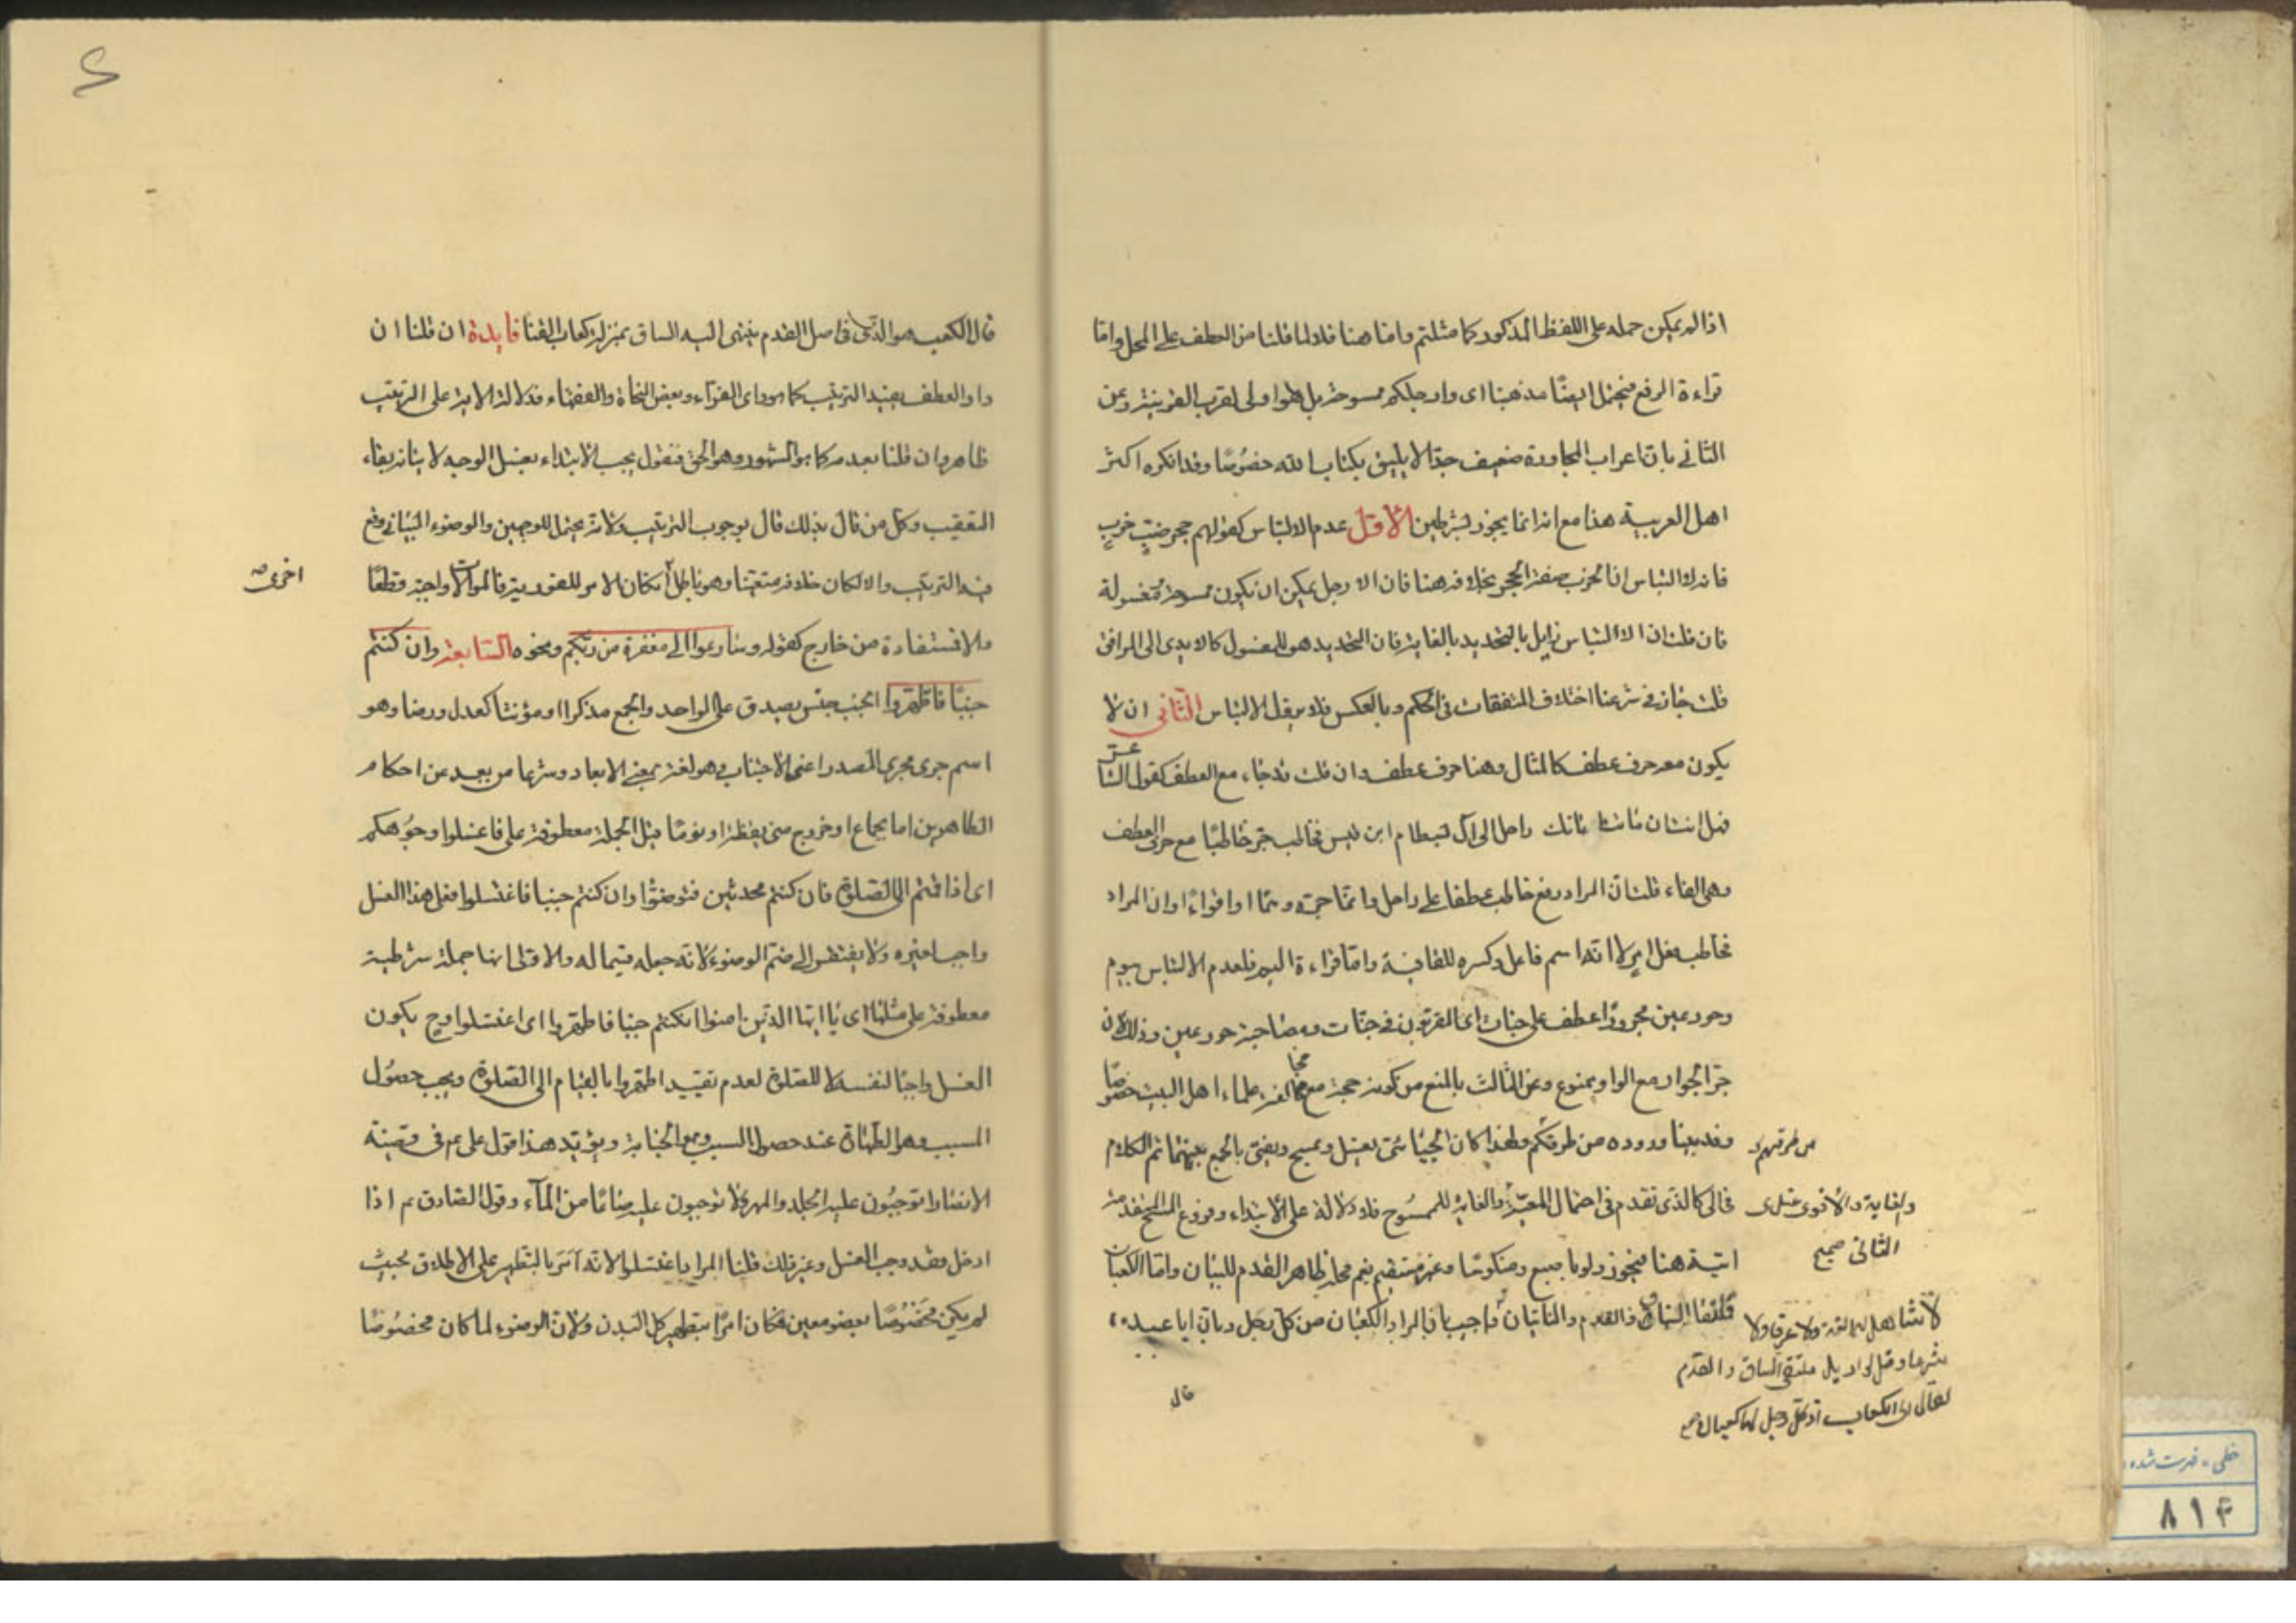 اذا لم يمكن حمله على اللفظ المذكور كما مثلتم واما هنا فلا لما قلنا من العطف على المحل واما
قراءة الرفع فيحتمل ايضًا مذهبنا اى وارجلكم ممسوحة بل هو اولى لقرب القرينة وعن
الثانى بان اعراب المجاورة ضعيف جدّا لا يليق بكتاب الله خصُوصًا وقد انكره اكثر
اهل العربية هذا مع انه انما يجوز بشرطين الاوّل عدم الالتباس كقولهم جحر ضبٍّ خربٍ
فانه لا التباس انّ الخرب صفة الحجر بخلافه هنا فان الارجل يمكن ان يكون ممسوحة ومغسولة
فان قلت ان الالتباس زايل بالتحديد بالغاية فان التحديد هو للمغسول كالايدى الى المرافق
قلت جاز فى شرعنا اختلاف المتفقات فى الحكم وبالعكس فلا يزيل الالتباس الثّانى ان لا
يكون معه حرف عطف كالمثال وهنا حرف عطف وان قلت قد جاء مع العطف كقول الشاعر
فهل انت ان ماتت اتانك راحل الى آل بسطام ابن قيس فخاطب جرّ خاطبًا مع حرف العطف
وهى الفاء قلت انّ المراد رفع خاطب عطفا على راحل وانما جرّه وهمًا او اقواءً او ان المراد
فخاطب فعل امر لا انه اسم فاعل وكسره للقافية وامّا قراءة اليم فلعدم الالتباس بيوم
وحور عين مجرورًا عطف على جنات اى المقربون فى جنات ومصاحبة حور عين وذلك لان
جرّ الجوار مع الواو ممنوع وعن الثالث بالمنع من كونه حجة مع مخالفة علماء اهل البيت خصوصًا
وقد بينا وروده من طرقكم ولهذا كان الجبائى يغسل ويمسح ويفتى بالجمع بينهما ثم الكلام
فى الى كالذى تقدم فى احتمال المعيّة والغاية للممسُوح فلا دلالة على الابتداء وفروع المسح المتقدمة
اتية هنا فيجوز ولو باصبع ومنكوسًا وغير مستقيم نعم محله ظاهر القدم للبيان وامّا الكعبان
فملتقا الساق والقدم والناتيان واجيب بان المراد الكعبان من كل رجل وبان ابا عبيده
من طرقهم
والغاية والاقوى عندى
الثانى صحيح
ملتقى الساق والقدم
قال
قال الكعب هو الذى فى اصل القدم ينتهى اليه الساق بمنزلة كعاب القنا فايدة ان قلنا ان
واو العطف يفيد الترتيب كما هو راى الفراء وبعض النحاة والفقهاء فدلالة الاية على الترتيب
ظاهر وان قلنا بعدمه كما هو المشهور وهو الحق فنقول يجب الابتداء بغسل الوجه لاتيانه بفاء
التعقيب وكل من قال بذلك قال بوجوب الترتيب ولانه يحتمل الوجهين والوضوء البيانى وقع
فيه الترتيب والا لكان خلافه متعينا وهو باطل ان كان الامر للفورية فالموالات واجبة قطعًا
اخرى
والا فتستفادة من خارج كقوله وسارعوا الى مغفرة من ربّكم ونحوه السّابعة وان كنتم
جنبًا فاطّهروا الجنب جنس يصدق على الواحد والجمع مذكرا او مؤنثا كعدل ورضا وهو
اسم جرى مجرى المصدر اعنى الاجناب وهو لغة بمعنى الابعاد وشرعا من بعد عن احكام
الطاهرين اما بجماع او خروج منى يقظة او نومًا قيل الجملة معطوفة على فاغسلوا وجُوهكم
اى اذا قمتم الى الصّلوة فان كنتم محدثين فتوضئوا وان كنتم جنبا فاغتسلوا فعلى هذا الغسل
واجب لغيره ولا يفتقر الى ضمّ الوضوء لانه جعله قسيما له والاولى انها جملة شرطية
معطوفة على مثلها اى يا ايها الذين امنوا ان كنتم جنبا فاطهروا اى اغتسلوا وح يكون
الغسل واجبًا لنفسه لا للصّلوة لعدم تقييد اطهروا بالقيام الى الصّلوة ويجب حصُول
المسبب وهو الطهارة عند حصول السبب وهو الجنابة ويؤيد هذا قول على عم فى قضية
الانصار اتوجبُون عليه الجلد والمهر ولا توجبون عليه صاعًا من المآء وقول الصّادق عم اذا
ادخله فقد وجب الغسل وغير ذلك قلنا المراد باغتسلوا لانه امر بالتطهير على الاطلاق بحيث
لم يكن مخصُوصًا بعضو معين فكان امرًا بتطهير كل البدن ولان الوضوء لما كان مخصُوصًا
خطى - فهرست شده
٨١٤